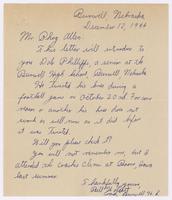 Burwell, Nebraska
December 12, 1944
Mr. Phog Allen
This letter will introduce to
you Bob Phillipps, a senior at the
Burwell High School, Burwell, Nebraska
He twisted his knee during a
football game on October 20th. For some
reason or another his knee does not
work as well now as it did before
it was twisted.
Will you please check it?
You will not remember me, but I
attended the Coaches Clinic at Boone, Iowa
last summer.
Thankfully yours
Coach Burwell H. S.